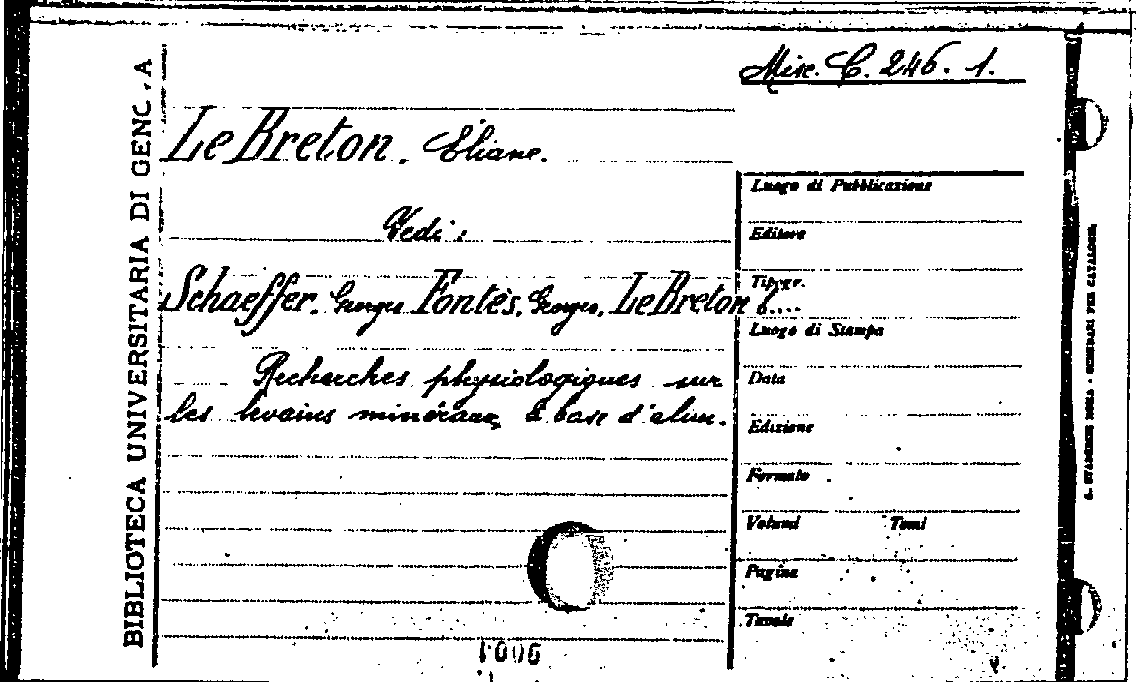 Misc. C. 246. 1.
BIBLIOTECA UNIVERSITARIA DI GENOVA
Le Breton, Éliane.
Vedi:
Schaeffer, Georges Fontès, Georges, Le Breton É....
Recherches physiologiques sur
les levains minéraux à base d'alun.
Luogo di Pubblicazione
Editore
Tipogr.
Luogo di Stampa
Data
Edizione
Formato
Volumi Tomi
Pagine
Tavole